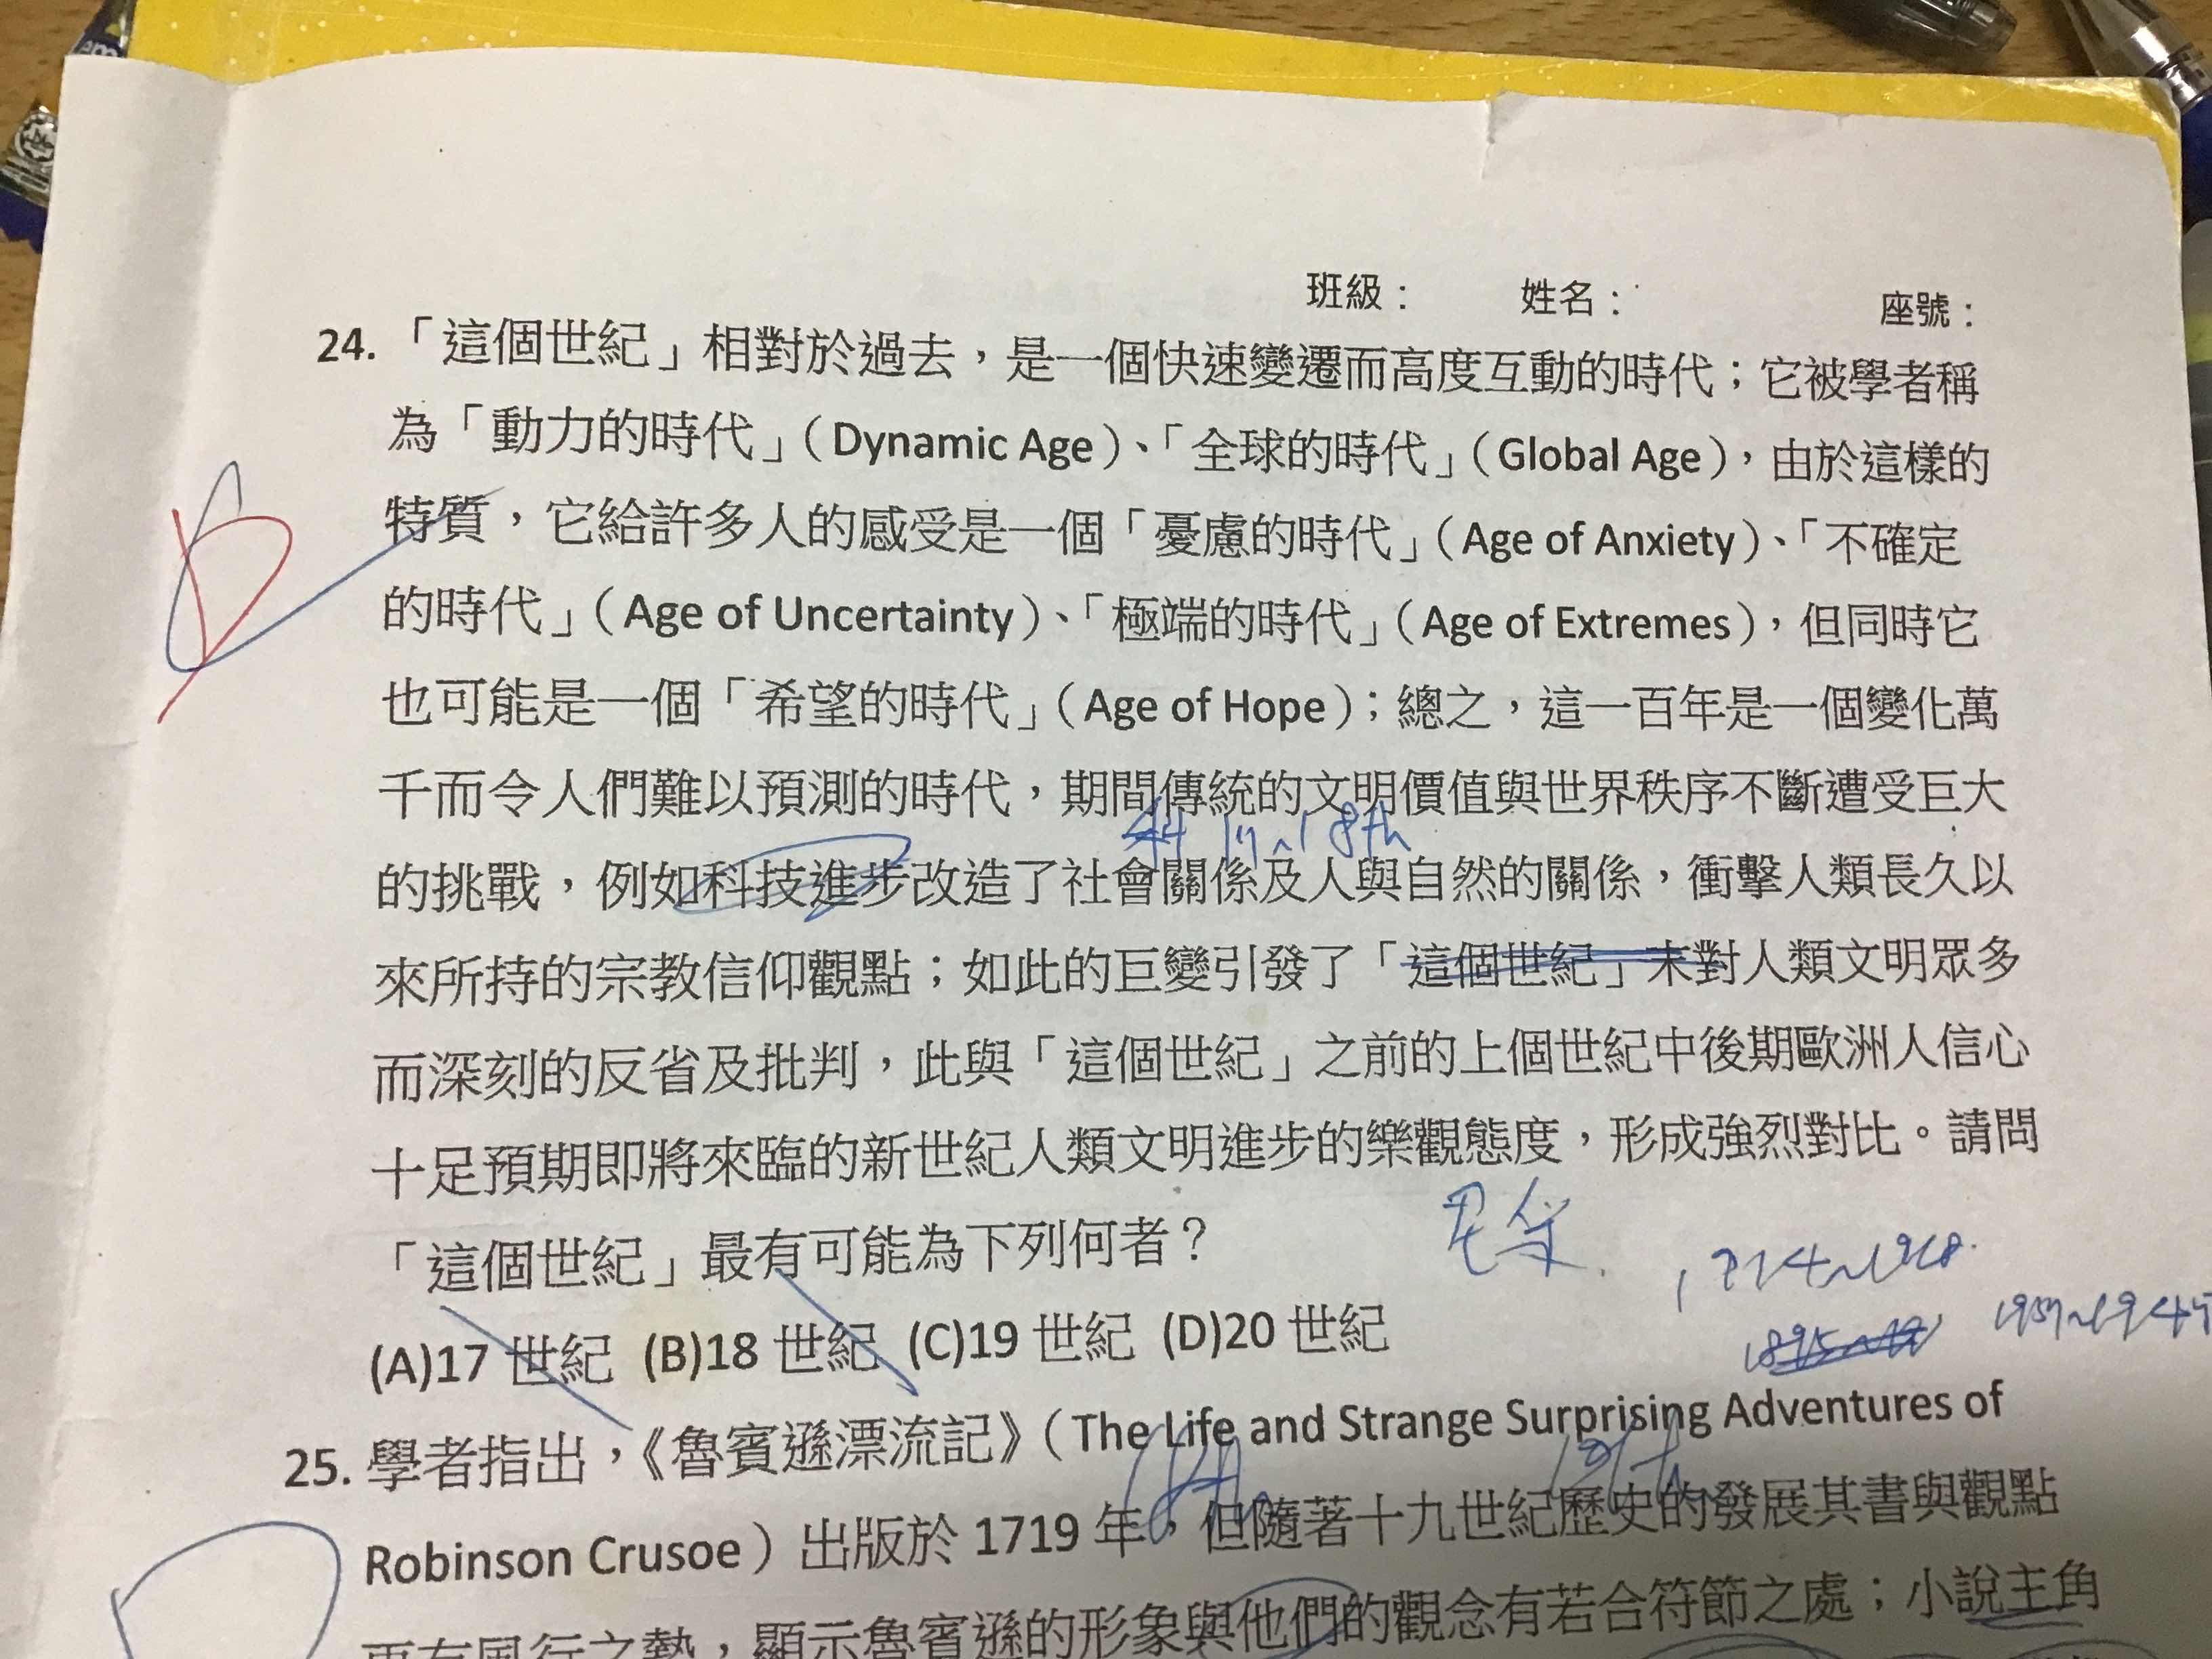 班級： 姓名： 座號：
24. 「這個世紀」相對於過去，是一個快速變遷而高度互動的時代；它被學者稱
為「動力的時代」（Dynamic Age）、「全球的時代」（Global Age），由於這樣的
特質，它給許多人的感受是一個「憂慮的時代」（Age of Anxiety）、「不確定
的時代」（Age of Uncertainty）、「極端的時代」（Age of Extremes），但同時它
也可能是一個「希望的時代」（Age of Hope）；總之，這一百年是一個變化萬
千而令人們難以預測的時代，期間傳統的文明價值與世界秩序不斷遭受巨大
17~18th
的挑戰，例如科技進步改造了社會關係及人與自然的關係，衝擊人類長久以
來所持的宗教信仰觀點；如此的巨變引發了「這個世紀」末對人類文明眾多
而深刻的反省及批判，此與「這個世紀」之前的上個世紀中後期歐洲人信心
十足預期即將來臨的新世紀人類文明進步的樂觀態度，形成強烈對比。請問
「這個世紀」最有可能為下列何者？
(A)17 世紀 (B)18 世紀 (C)19 世紀 (D)20 世紀
25. 學者指出，《魯賓遜漂流記》（The Life and Strange Surprising Adventures of
Robinson Crusoe）出版於 1719 年，但隨著十九世紀歷史的發展其書與觀點
更有風行之勢，顯示魯賓遜的形象與他們的觀念有若合符節之處；小說主角